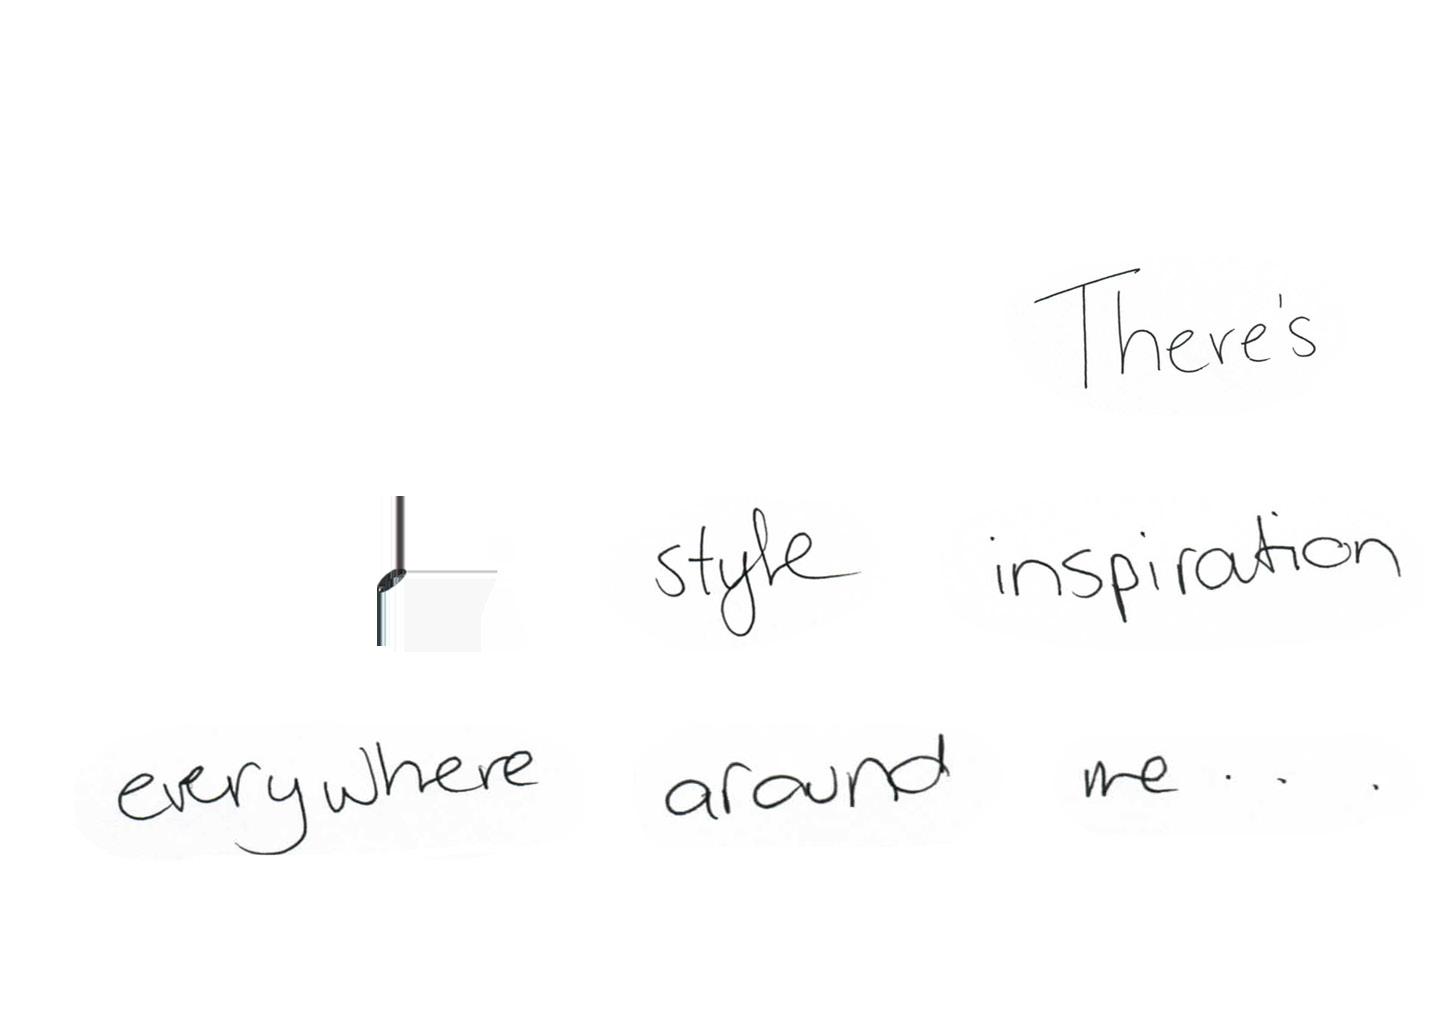 There's
style inspiration
everywhere around me...